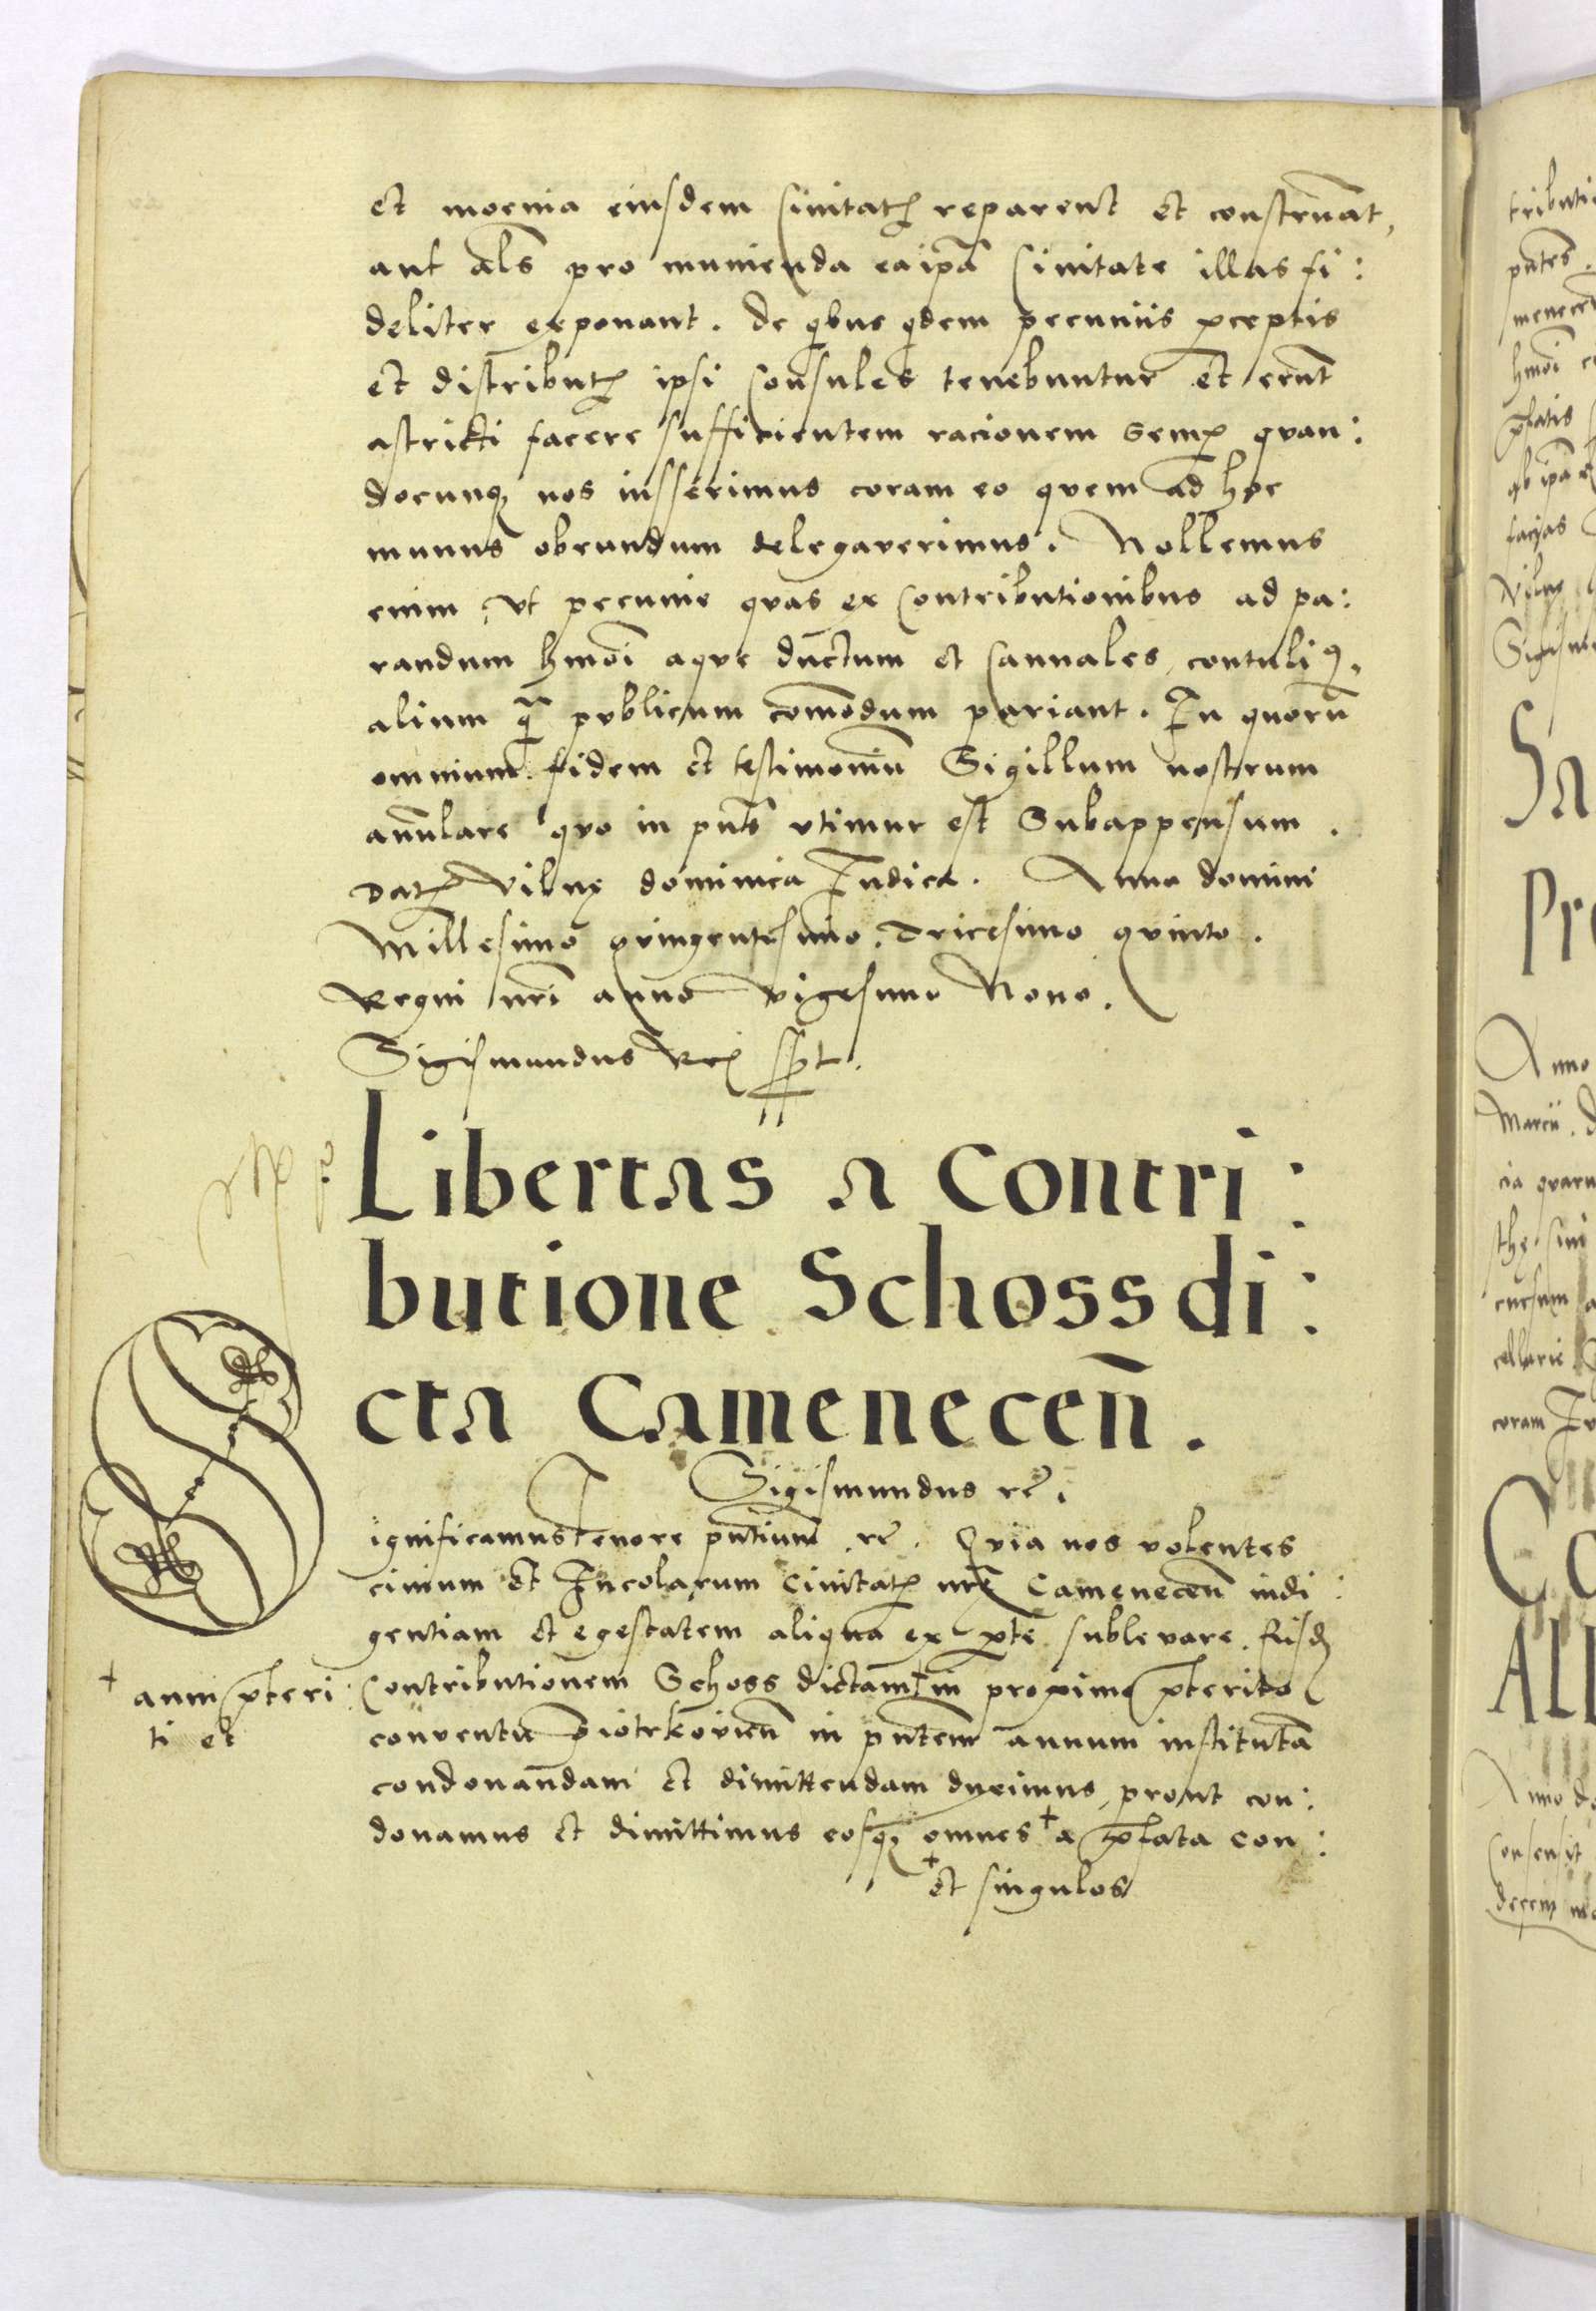 et moenia eiusdem Civitatꝭ reparent et construāt,
aut als̄ pro munienda ea ip̄a Civitate illas fi:
deliter exponant. De qbus qdem pecuniis ꝑceptis
et distributꝭ ipsi Consules tenebuntur et erūt
astricti facere sufficientem racionem semꝑ quan:
docunqꝫ nos iusserimus coram eo quem ad hoc
munus obeundum delegaverimus. Nollemus
enim, ut pecunie quas ex Contributionibus ad pa:
randum hmōi aque ductum et Cannales, contuliꝰ,
alium q̄ publicum com̄odum pariant. In quorū
omnium fidem et testimoniū Sigillum nostrum
an̄ulare quo in pn̄ts utimur est Subappensum.
Datꝭ Vilnę dominica Iudica. Anno domini
Millesimo quingentesimo, Tricesimo quinto.
Regni nr̄i anno vigesimo Nono.
Sigismundus Rex sspt.
Libertas a Contri:
butione Schoss di:
cta Camenecen̄.
Sigismundus rc̄.
S
ignificamus Tenore pn̄tium rc̄. Quia nos volentes
civium et Incolarum Civitatꝭ nrę̄ Camenecen̄ indi:
gentiam et egestatem aliqua ex ꝑte sublevare. Eisdꝫ
Contributionem Schoss dictam + in proxime p̄terito
+ anni p̄teri:
ti et
conventu Piotrkovien̄ in pn̄tem annum institutā
condonandam et dimittendam duximus, prout con:
donamus et dimittimus eosqꝫ omnes + a p̄fata con:
+ et singulos